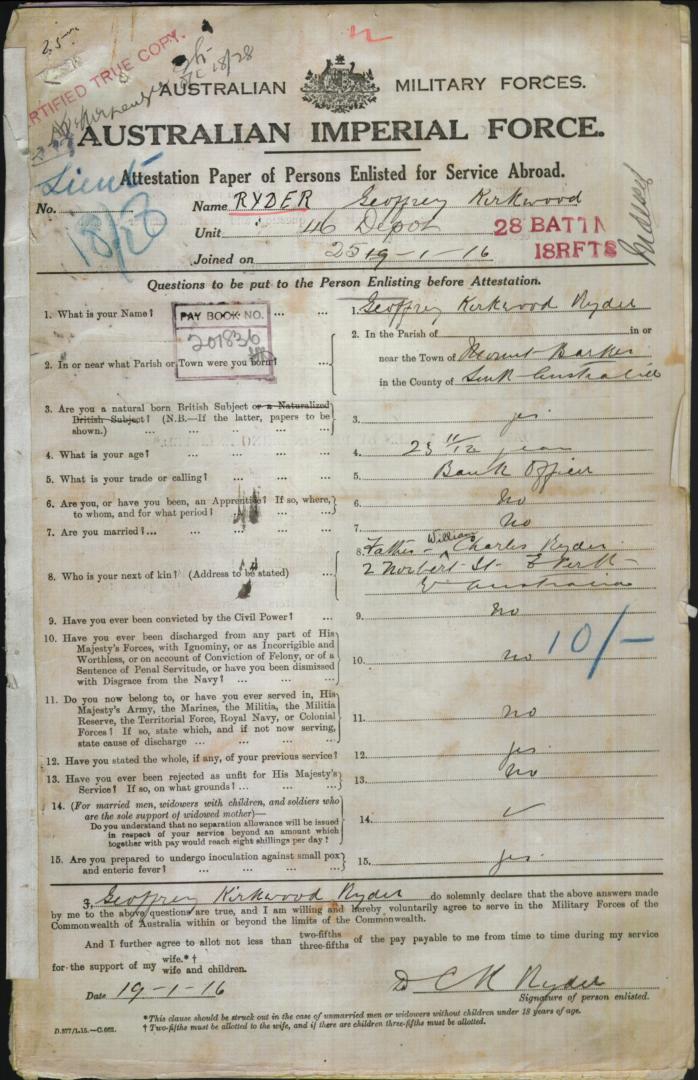 CERTIFIED TRUE COPY.
18/28
AUSTRALIAN MILITARY FORCES.
AUSTRALIAN IMPERIAL FORCE.
Attestation Paper of Persons Enlisted for Service Abroad.
Lieut
18/28
No. Name RYDER Geoffrey Kirkwood
Unit 46 Depot
28 BATTN
18RFTS
Joined on 19-1-16
Questions to be put to the Person Enlisting before Attestation.
1. What is your Name? ... ... Geoffrey Kirkwood Ryder
PAY BOOK NO.
201836
2. In or near what Parish or Town were you born?
2. In the Parish of in or
near the Town of Mount Barker
in the County of South Australia
3. Are you a natural born British Subject or a Naturalized
British Subject? (N.B.—If the latter, papers to be
shown.) ... ... ... ...
3. yes
4. What is your age? ... ... ... ... 4. 23 11/12 years
5. What is your trade or calling? ... ... ... 5. Bank Officer
6. Are you, or have you been, an Apprentice? If so, where,
to whom, and for what period? ... ...
6. No
7. Are you married?... ... ... ... ... 7. No
8. Who is your next of kin? (Address to be stated)
8. Father - William Charles Ryder
2 Norbert St E Perth
W Australia
9. Have you ever been convicted by the Civil Power? ... 9. no
10. Have you ever been discharged from any part of His
Majesty's Forces, with Ignominy, or as Incorrigible and
Worthless, or on account of Conviction of Felony, or of a
Sentence of Penal Servitude, or have you been dismissed
with Disgrace from the Navy? ... ... ...
10. no
10/-
11. Do you now belong to, or have you ever served in, His
Majesty's Army, the Marines, the Militia, the Militia
Reserve, the Territorial Force, Royal Navy, or Colonial
Forces? If so, state which, and if not now serving,
state cause of discharge ... ... ... ...
11. no
12. Have you stated the whole, if any, of your previous service? 12. yes
13. Have you ever been rejected as unfit for His Majesty's
Service? If so, on what grounds? ... ... ...
13. No
14. (For married men, widowers with children, and soldiers who
are the sole support of widowed mother)—
Do you understand that no separation allowance will be issued
in respect of your service beyond an amount which
together with pay would reach eight shillings per day?
14. ✓
15. Are you prepared to undergo inoculation against small pox
and enteric fever? ... ... ... ...
15. yes
I, Geoffrey Kirkwood Ryder do solemnly declare that the above answers made
by me to the above questions are true, and I am willing and hereby voluntarily agree to serve in the Military Forces of the
Commonwealth of Australia within or beyond the limits of the Commonwealth.
And I further agree to allot not less than two-fifths
three-fifths of the pay payable to me from time to time during my service
for the support of my wife.* †
wife and children.
Date 19-1-16 Ryder
Signature of person enlisted.
*This clause should be struck out in the case of unmarried men or widowers without children under 18 years of age.
† Two-fifths must be allotted to the wife, and if there are children three-fifths must be allotted.
D.577/1.15.—C.662.